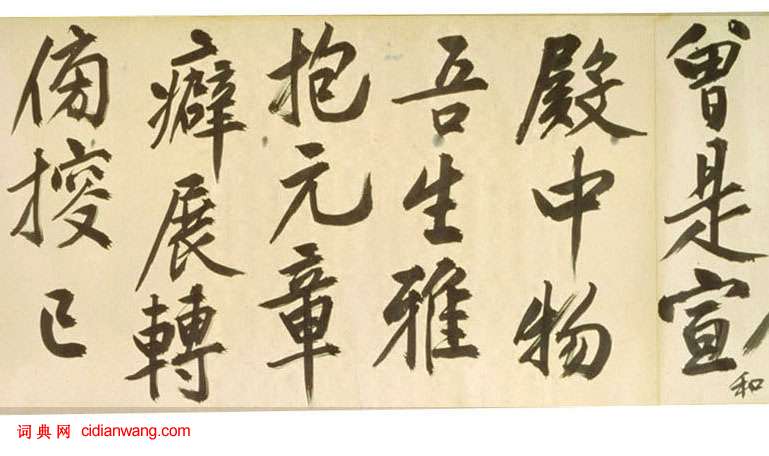 曾是宣和
殿中物
吾生雅
抱元章
癖展轉
傍搜已
词典网 cidianwang.com